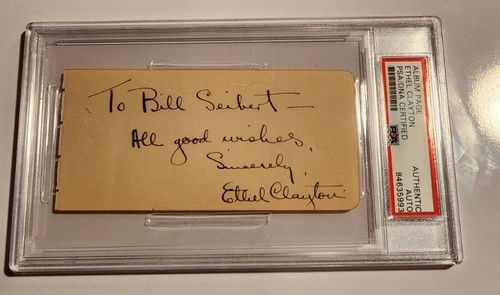 To Bill Seibert—
All good wishes,
Sincerely,
Ethel Clayton
ALBUM PAGE
ETHEL CLAYTON
PSA/DNA CERTIFIED
PSA
AUTHENTIC
AUTO
84635993